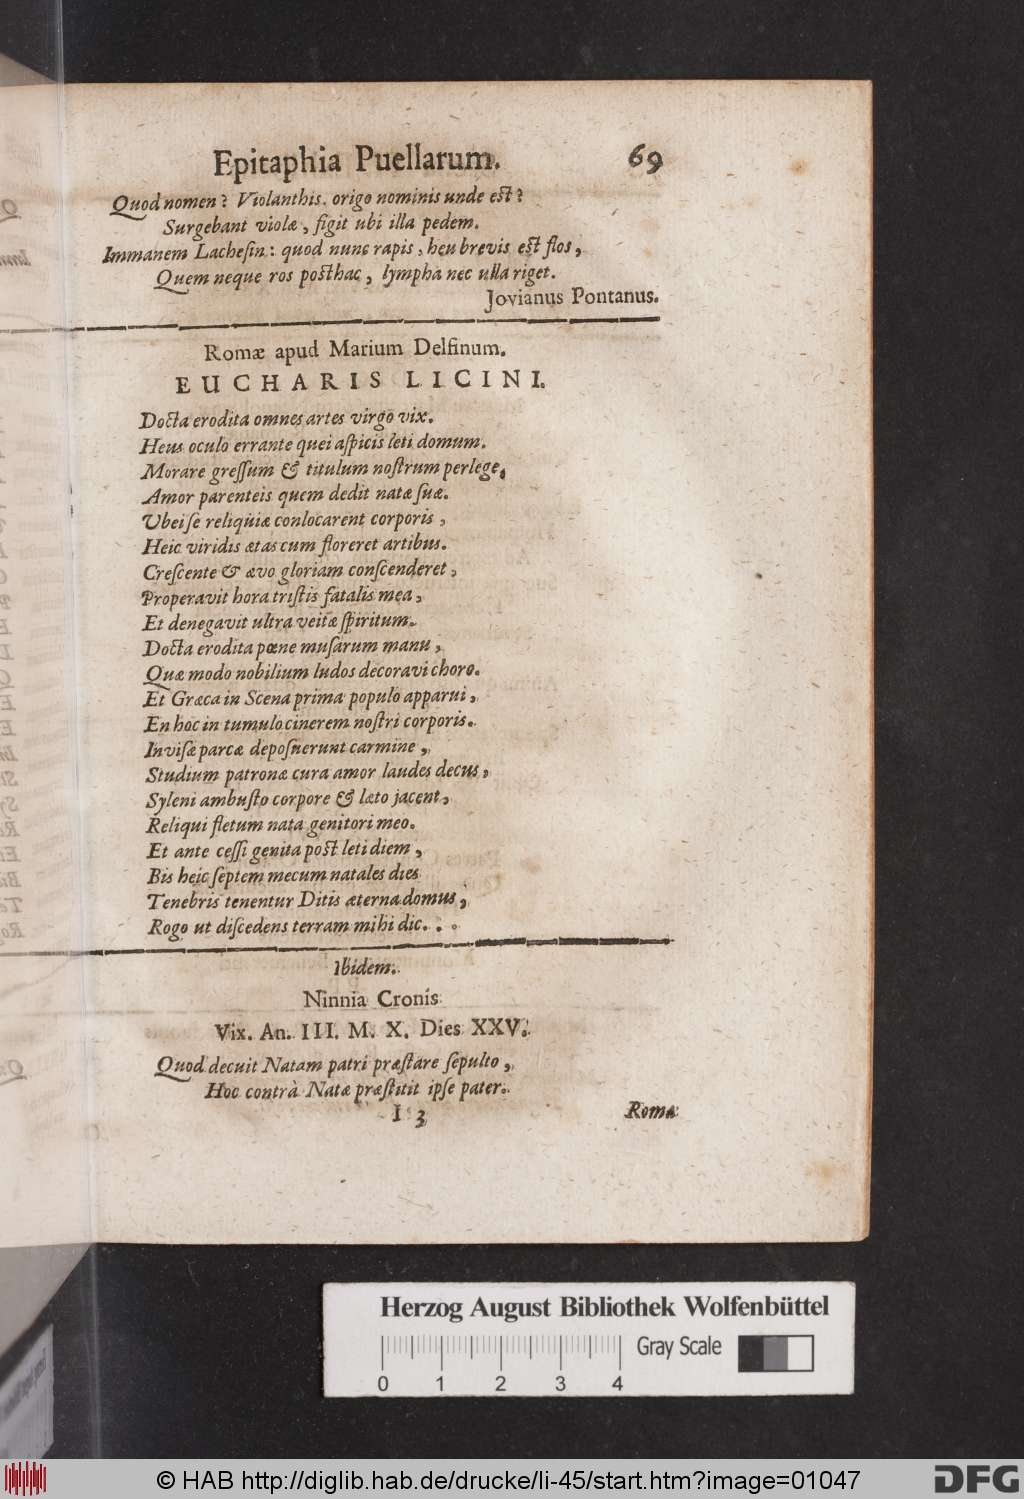 Epitaphia Puellarum. 69
Quod nomen? Violanthis. origo nominis unde est?
Surgebant violæ, figit ubi illa pedem.
Immanem Lachesin: quod nunc rapis, heu brevis est flos,
Quem neque ros posthac, lympha nec ulla riget.
Jovianus Pontanus.
Romæ apud Marium Delfinum.
EUCHARIS LICINI.
Docta erodita omnes artes virgo vix.
Heus oculo errante quei aspicis leti domum.
Morare gressum & titulum nostrum perlege,
Amor parenteis quem dedit natæ suæ.
Ubei se reliquiæ conlocarent corporis,
Heic viridis ætas cum floreret artibus.
Crescente & ævo gloriam conscenderet,
Properavit hora tristis fatalis mea,
Et denegavit ultra veitæ spiritum.
Docta erodita pœne musarum manu,
Quæ modo nobilium ludos decoravi choro.
Et Græca in Scena prima populo apparui,
En hoc in tumulo cinerem nostri corporis.
Invisæ parcæ deposuerunt carmine,
Studium patronæ cura amor laudes decus,
Syleni ambusto corpore & læto jacent,
Reliqui fletum nata genitori meo.
Et ante cessi genita post leti diem,
Bis heic septem mecum natales dies
Tenebris tenentur Ditis æterna domus,
Rogo ut discedens terram mihi dic. . .
Ibidem.
Ninnia Cronis
Vix. An. III. M. X. Dies XXV.
Quod decuit Natam patri præstare sepulto,
Hoc contrà Natæ præstitit ipse pater.
I 3 Romæ
Herzog August Bibliothek Wolfenbüttel
Gray Scale
0 1 2 3 4
© HAB http://diglib.hab.de/drucke/li-45/start.htm?image=01047
DFG